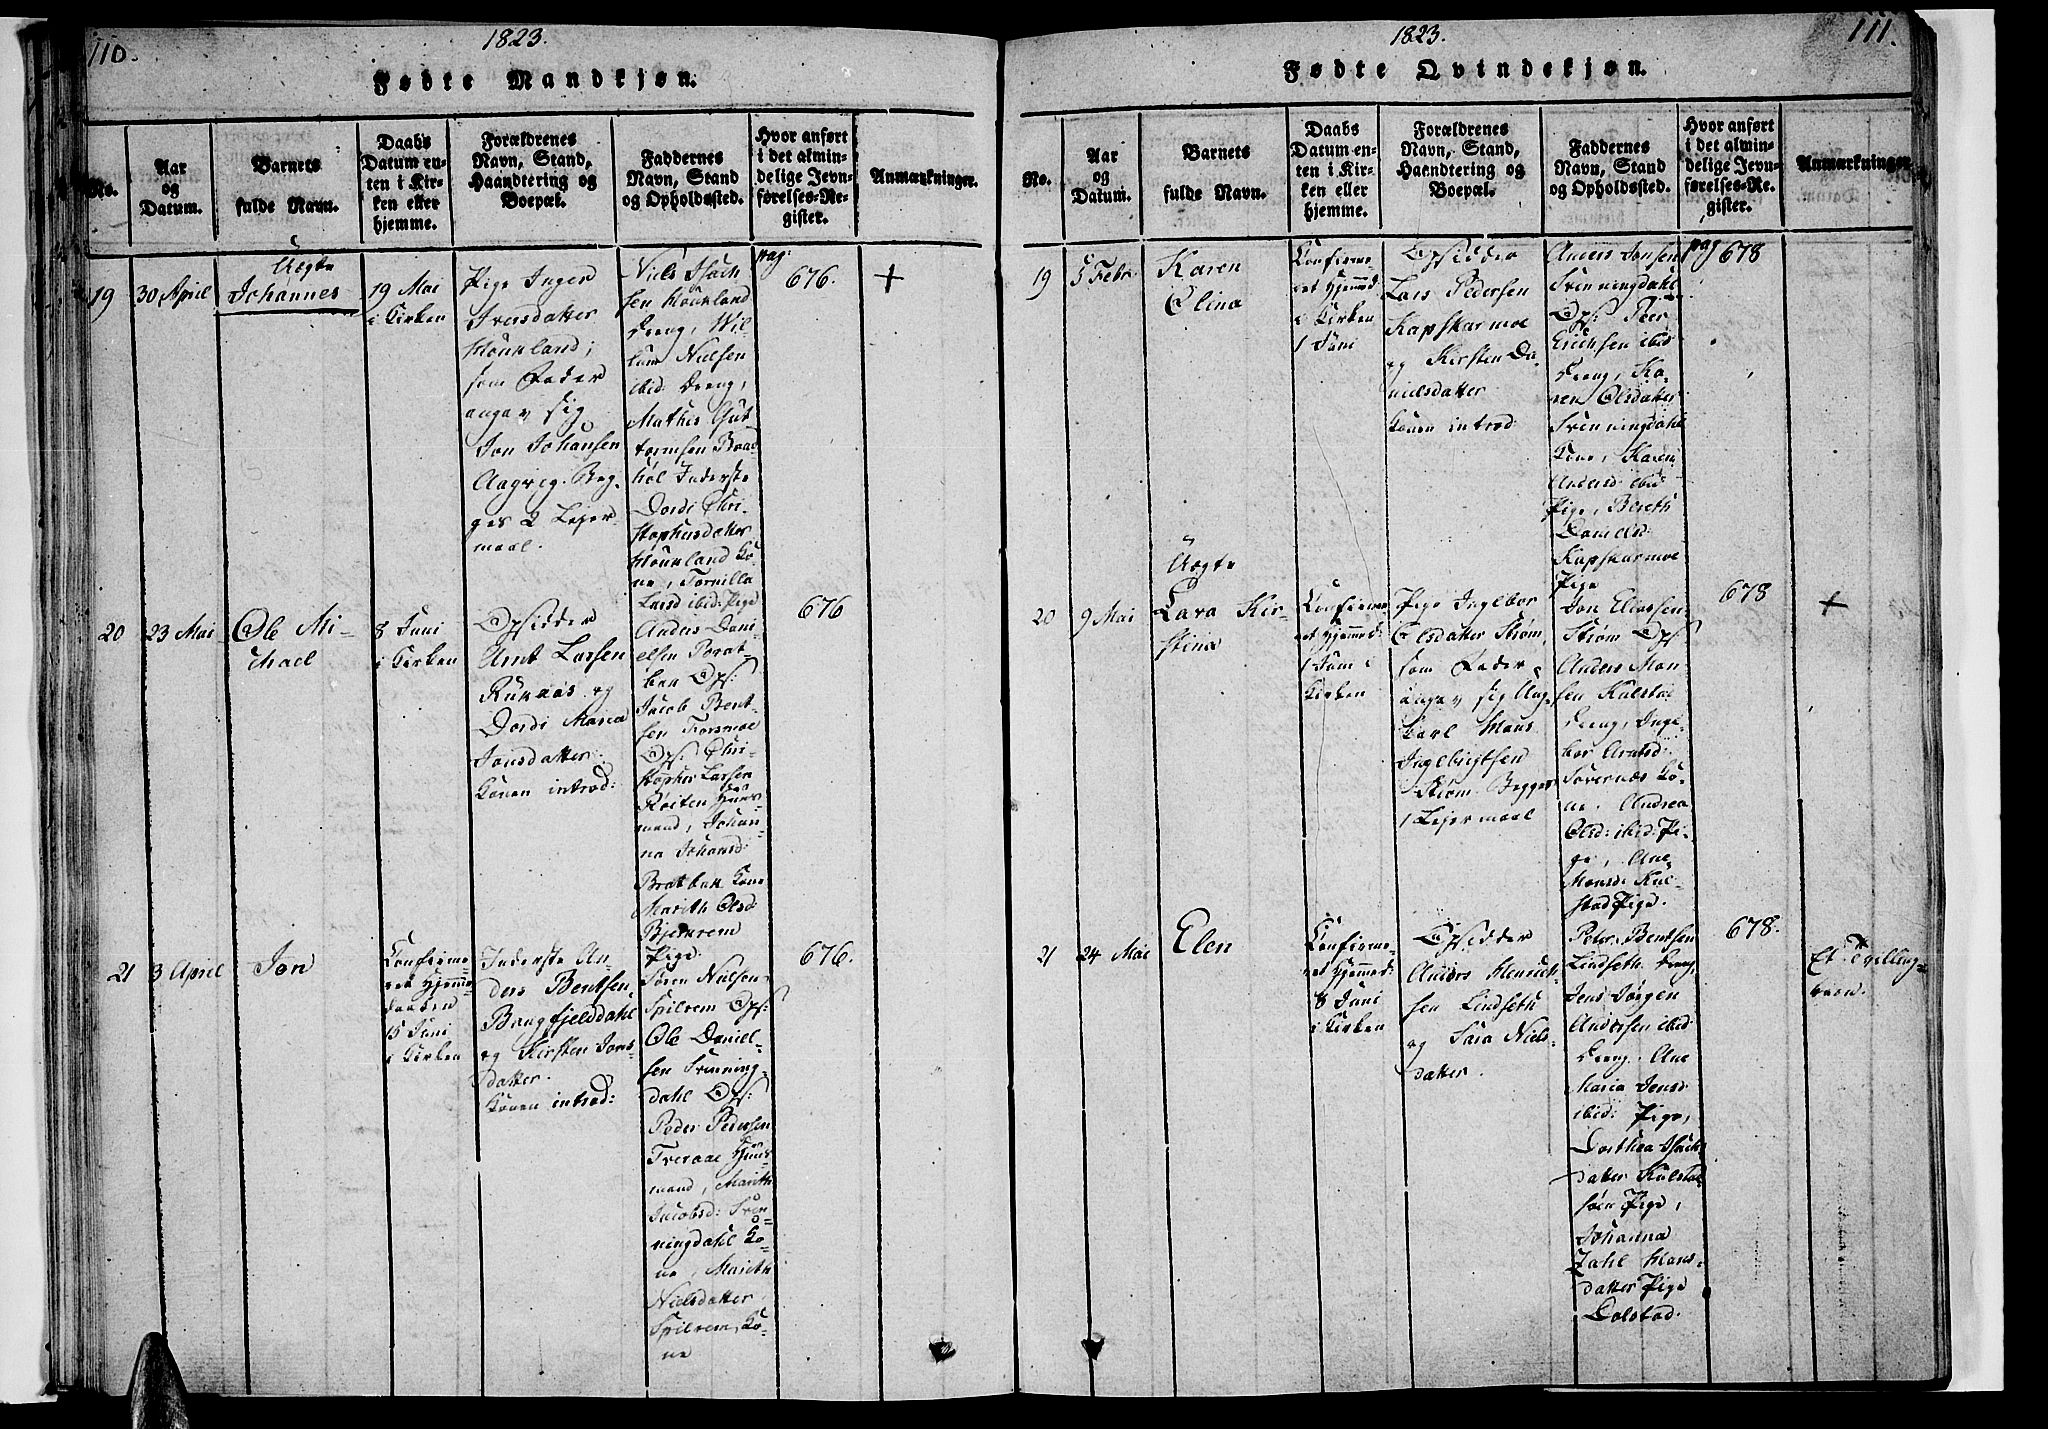 110.
1823.
Fødte Mandkjøn.
No.
Aar
og
Datum.
Barnets
fulde Navn.
Daabs
Datum en-
ten i Kir-
ken eller
hjemme.
Forældrenes
Navn, Stand,
Haandtering og
Boepæl.
Faddernes
Navn, Stand
og Opholdssted.
Hvor anført
i det almin-
delige Jevn-
førelses-Re-
gister.
Anmærkninger.
19
30 April
Uægte
Johannes
19 Mai
i Kirken
Pige Inger
Iversdatter
som Fader
angav sig
Jon Johansen
Aagvig. Beg-
ges 2 Lejer-
maal.
Niels Isach
sen
Dreng, Wil-
lum Nielsen
ibid: Dreng,
Mathis Gut-
tormsen Baad
høl Inderste
Dordi Chri-
stophersdatter
Ko-
ne, Tornilla
Larsd ibid: Pige
pag:
676.
+
20
23 Mai
Ole Mi-
chael
8 Juni
i Kirken
Opsidder
Amt Larsen
og
Dordi Maria
Jonsdatter.
Konen introd:
Anders Dani-
elsen Brat-
bak Ops:
Jacob Bent-
sen Forsmoe
Ops: Chri-
stopher Larsen
Røiten Huus-
mand, Johan-
na Johansd:
Bratbak Kone
Marith Olsd
Bjerkrem
Pige
676
21
3 April
Jon
Confirme-
ret Hjemme-
daaben
15 Juni
i Kirken
Inderste An-
ders Bentsen
Baagfjelddahl
og Kirsten Jons-
datter.
Konen introd:
Søren Nielsen
Spilrem Ops:
Ole Daniel-
sen Svenning-
dahl Ops:
Peder Pedersen
Tveraae Huus-
mand, Marith
Jacobsd: Sven-
ningdahl Ko-
ne, Marith
Nielsdatter
Spilrem, Ko-
ne
676.
111.
1823.
Fødte Qvindekjøn.
No.
Aar
og
Datum.
Barnets
fulde Navn.
Daabs
Datum en-
ten i Kir-
ken eller
hjemme.
Forældrenes
Navn, Stand,
Haandtering og
Boepæl.
Faddernes
Navn, Stand
og Opholdssted.
Hvor anført
i det almin-
delige Jevn-
førelses-Re-
gister.
Anmærkninger
19
5 Febr
Karen
Olina
Confirme-
ret Hjemmed:
i Kirken
1 Juni
Opsidder
Lars Pedersen
Kapskarmoe
og Kirsten Da-
nielsdatter
Konen introd:
Anders Jonsen
Svenningdahl
Ops: Peer
Erichsen ibid
Dreng, Ka-
ren Olsdatter
Svenningdahl
Kone, Karen
Andersd: ibid
Pige, Bereth
Danielsd:
Kapskarmoe
Pige
pag 678
20
9 Mai
Uægte
Lava Kir-
stina
Confirme-
ret Hjemmed:
1 Juni i
Kirken
Pige Ingebor
Olsdatter Strøm,
som Fader
angav sig Ung-
karl Hans
Ingebrigtsen
Strøm. Begges
1 Lejermaal
Jon Eliassen
Strøm Ops:
Anders Mon-
sen Kulstad
Dreng, Inge-
bor Arntsd:
Søvernæs Ko-
ne. Andrea
Olsd: ibid: Pi-
ge, Ane
Monsd: Kul-
stad Pige.
678
+
21
24 Mai
Elen
Confirme-
ret Hjemmed:
8 Juni
i Kirken
Opsidder
Anders Henrich-
sen Lindseth
og Sara Niels-
datter.
Peter Bentsen
Lindseth Dreng
Jens Jørgen
Andersen ibid:
Dreng. Ane
Maria Jensd
ibid: Pige,
Dorthea Isachs-
datter Kulstad
søen Pige,
Johanna
Zahl Hans-
datter Pige
Dolstad.
678.
Et Tvilling-
barn.